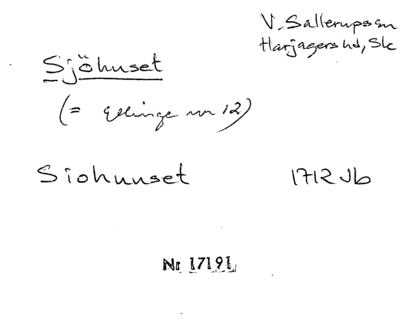 V. Sallerups sn
Harjagers hd, Sk
Sjöhuset
(= Ellinge nr 12)
Siohuuset 1712 Jb
Nr 17191